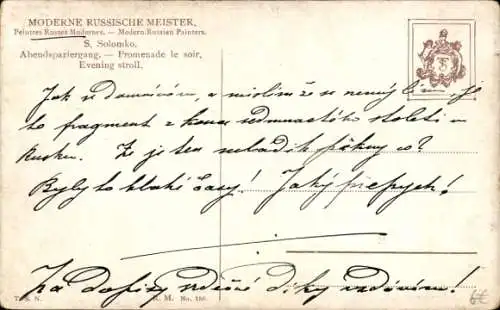 MODERNE RUSSISCHE MEISTER.
Peintres Russes Modernes. — Modern Russian Painters.
S. Solomko.
Abendspaziergang. — Promenade le soir,
Evening stroll.
Jak se domnívám, a myslím že se nemýlím, je
to fragment z konce sedmnactého století v
Rusku. Že je ten mladík pěkný co?
Byly to hlahé časy! Jaký přepych!
Za dopisy srdečné díky vzdávám!
T. S. N. R. M. No. 156.
6€